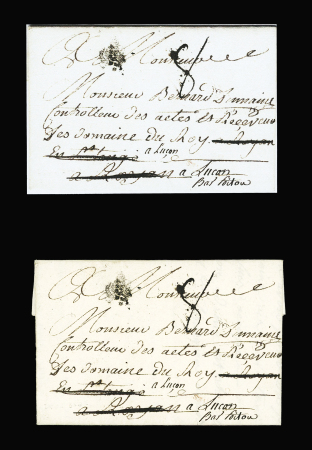 A Monsieur
Monsieur Bernard Inmaine
Controlleur des actes & Receveur
des domaine du Roy a Royan
En
a Luçon
a Royan a Luçon
Bas Poitou
A Monsieur
Monsieur Bernard Inmaine
Controlleur des actes & Receveur
des domaine du Roy a Royan
En
a Luçon
a Royan a Luçon
Bas Poitou